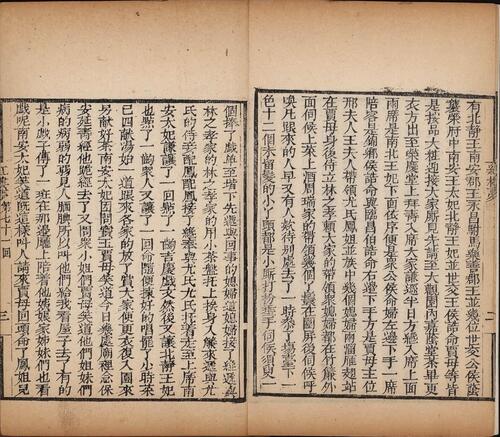 有北靜王南安郡王永昌駙馬樂善郡王並幾位世交公侯蔭
襲榮府中南安王太妃北靜王妃並世交公侯誥命賈母等皆
是按品大粧迎接大家廝見先請至大觀園內嘉蔭堂茶畢更
衣方出至榮慶堂上拜壽入席大家謙遜半日方纔入席上面
兩席是南北王妃下面依序便是眾公侯命婦左邊下手一席
陪客是錦鄉侯誥命與臨昌伯誥命右邊下手方是賈母主位
邢夫人王夫人帶領尤氏鳳姐並族中幾個媳婦兩溜雁翅站
在賈母身後侍立林之孝賴大家的帶領眾媳婦都在竹簾外
面伺候上菜上酒周瑞家的帶領幾個丫鬟在圍屏後伺候呼
喚凡跟來的人早又有人款待別處去了一時參了場臺下一
色十二個未留髮的小丫頭都是小廝打扮垂手伺候須臾一
二
個捧了戲单至堦下先遞與回事的媳婦這媳婦接了纔遞與
林之孝家的用小茶盤托上挨身入簾來遞與尤
氏的侍妾配鳳配鳳接了纔奉與尤氏尤氏托著走至上席南
安太妃謙讓了一回㸃了一齣吉慶戲文然後又讓北靜王妃
也㸃了一齣眾人又讓了一回命隨便揀好的唱罷了小時菜
已四献湯始一道跟來各家的放了賞大家便更衣復入園來
另献好茶南安太妃因問寳玉賈母笑道今日幾處廟裡念保
安延壽經他跪經去了又問眾小姐們賈母笑道他們姐妹們
病的病弱的弱見人腼腆所以叫他們給我看屋子去了有的
是小戲子傳了一班在那邊廳上陪着他姨娘家姊妹們也看
戲呢南安太妃笑道這樣叫人請來賈母回頭命了鳳姐兒
紅樓夢 第七十一回
三